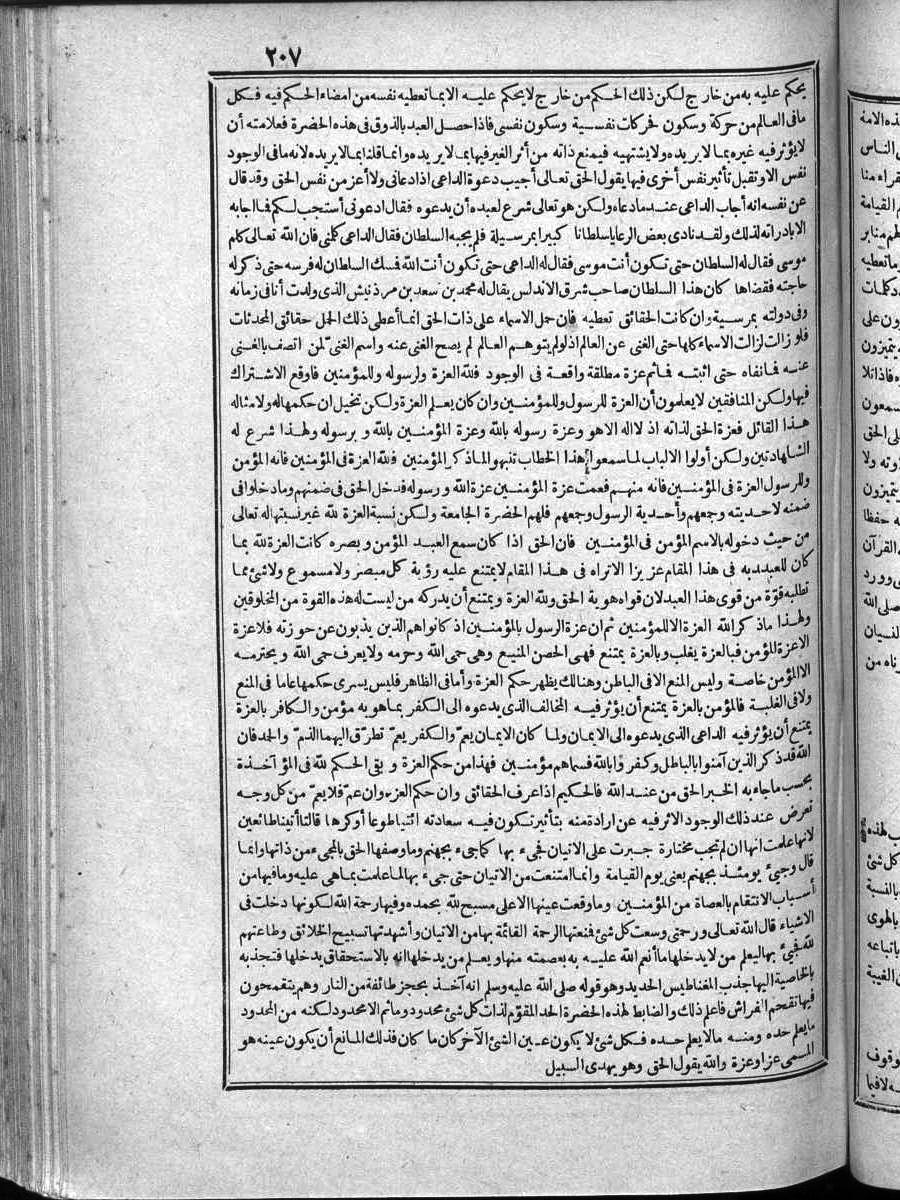 ٢٠٧
يحكم عليه به من خارج لكن ذلك الحكم من خارج لا يحكم عليه الا بما تعطيه نفسه من امضاء الحكم فيه فكل
مافى العالم من حركة وسكون فحركات نفسية وسكون نفسى فاذا حصل العبد بالذوق فى هذه الحضرة فعلامته أن
لا يؤثر فيه غيره بما لا يريده ولا يشتهيه فيمنع ذاته من أثر الغير فيها بما لا يريده وانما قلنا بما لا يريده لانه مافى الوجود
نفس الا وتقبل تأثير نفس أخرى فيها يقول الحق تعالى أجيب دعوة الداعى اذا دعانى ولا أعز من نفس الحق وقد قال
عن نفسه انه أجاب الداعى عند ما دعاه ولكن هو تعالى شرع لعبده أن يدعوه فقال ادعونى أستجب لكم فما اجابه
الا بارادته لذلك ولقد نادى بعض الرعايا سلطانا كبيرا بمرسية فلم يجبه السلطان فقال الداعى كلمنى فان الله تعالى كلم
موسى فقال له السلطان حتى تكون أنت موسى فقال له الداعى حتى تكون أنت الله فمسك السلطان له فرسه حتى ذكر له
حاجته فقضاها كان هذا السلطان صاحب شرق الاندلس يقال له محمد بن سعد بن مرذنيش الذى ولدت أنا فى زمانه
وفى دولته بمرسية وان كانت الحقائق تعطيه فان حمل الاسماء على ذات الحق انما أعطى ذلك الحمل حقائق المحدثات
فلو زالت لزالت الاسماء كلها حتى الغنى عن العالم اذ لو لم يتوهم العالم لم يصح الغنى عنه واسم الغنىّ لمن اتصف بالغنى
عنه فما نفاه حتى اثبته فما ثم عزة مطلقة واقعة فى الوجود فلله العزة ولرسوله وللمؤمنين فاوقع الاشتراك
فيها ولكن المنافقين لا يعلمون أن العزة للرسول وللمؤمنين وان كان يعلم العزة ولكن تخيل ان حكمها له ولامثاله
هذا القائل فعزة الحق لذاته اذ لا اله الا هو وعزة رسوله بالله وعزة المؤمنين بالله و برسوله ولهذا شرع له
الشهادتين ولكن أولوا الالباب لما سمعوا هذا الخطاب تنبهوا لما ذكر المؤمنين فلله العزة فى المؤمنين فانه المؤمن
وللرسول العزة فى المؤمنين فانه منهم فعمت عزة المؤمنين عزة الله و رسوله فدخل الحق فى ضمنهم وما دخلوا فى
ضمنه لاحديته وجمعهم وأحدية الرسول وجمعهم فلهم الحضرة الجامعة ولكن نسبة العزة لله غير نسبتها له تعالى
من حيث دخوله بالاسم المؤمن فى المؤمنين فان الحق اذا كان سمع العبد المؤمن و بصره كانت العزة لله بما
كان للعبد به فى هذا المقام عزيزا الا تراه فى هذا المقام لا يمتنع عليه رؤية كل مبصر ولا مسموع ولا شئ مما
تطلبه قوّة من قوى هذا العبد لان قواه هوية الحق ولله العزة و يمتنع أن يدركه من ليست له هذه القوة من المخلوقين
ولهذا ما ذكر الله العزة الا للمؤمنين ثم ان عزة الرسول بالمؤمنين اذ كانوا هم الذين يذبون عن حوزته فلا عزة
الا عزة المؤمن فبالعزة يغلب وبالعزة يمتنع فهى الحصن المنيع وهى حمى الله وحرمه ولا يعرف حمى الله و يحترمه
الا المؤمن خاصة وليس المنع الا فى الباطن وهنالك يظهر حكم العزة وأما فى الظاهر فليس يسرى حكمها عاما فى المنع
ولا فى الغلبة فالمؤمن بالعزة يمتنع أن يؤثر فيه المخالف الذى يدعوه الى الكفر بما هو به مؤمن والكافر بالعزة
يمتنع أن يؤثر فيه الداعى الذى يدعوه الى الايمان ولما كان الايمان يعمّ والكفر يعمّ تطرّق اليهما الذمّ والحمد فان
الله قد ذكر الذين آمنوا بالباطل وكفروا بالله فسماهم مؤمنين فهذا من حكم العزة و بقى الحكم لله فى المؤاخذة
بحسب ما جاء به الخبر الحق من عند الله فالحكيم اذا عرف الحقائق وان حكم العزة وان عمّ فلا يعمّ من كل وجه
تعرض عند ذلك لوجود الاثر فيه عن ارادة منه بتأثير تكون فيه سعادته ائتيا طوعا أو كرها قالتا أتينا طائعين
لانها علمت انها ان لم تجب مختارة جبرت على الاتيان فجىء بها كما جىء بجهنم وما وصفها الحق بالمجىء من ذاتها وانما
قال وجىء يومئذ بجهنم يعنى يوم القيامة وانما امتنعت من الاتيان حتى جىء بها لما علمت بما هى عليه وما فيها من
أسباب الانتقام بالعصاة من المؤمنين وما وقعت عينها الا على مسبح لله بحمده وفيها رحمة الله لكونها دخلت فى
الاشياء قال الله تعالى ورحمتى وسعت كل شئ فمنعتها الرحمة القائمة بها من الاتيان وأشهدتها تسبيح الخلائق وطاعتهم
لله فجىءَ بها ليعلم من لا يدخلها ما أنعم الله عليه به بعصمته منها ويعلم من يدخلها انه بالاستحقاق يدخلها فتجذبه
بالخاصية اليها جذب المغناطيس الحديد وهو قوله صلى الله عليه وسلم انه آخذ بحجز طائفة من النار وهم يتقحمون
فيها تقحم الفراش فاعلم ذلك والضابط لهذه الحضرة الحد المقوّم لذات كل شئ محدود وما ثم الا محدود لكنه من المحدود
ما يعلم حده ومنه مالا يعلم حده فكل شئ لا يكون عين الشئ الآخر كان ما كان فذلك المانع أن يكون عينه هو
المسمى عزا وعزة والله يقول الحق وهو يهدى السبيل